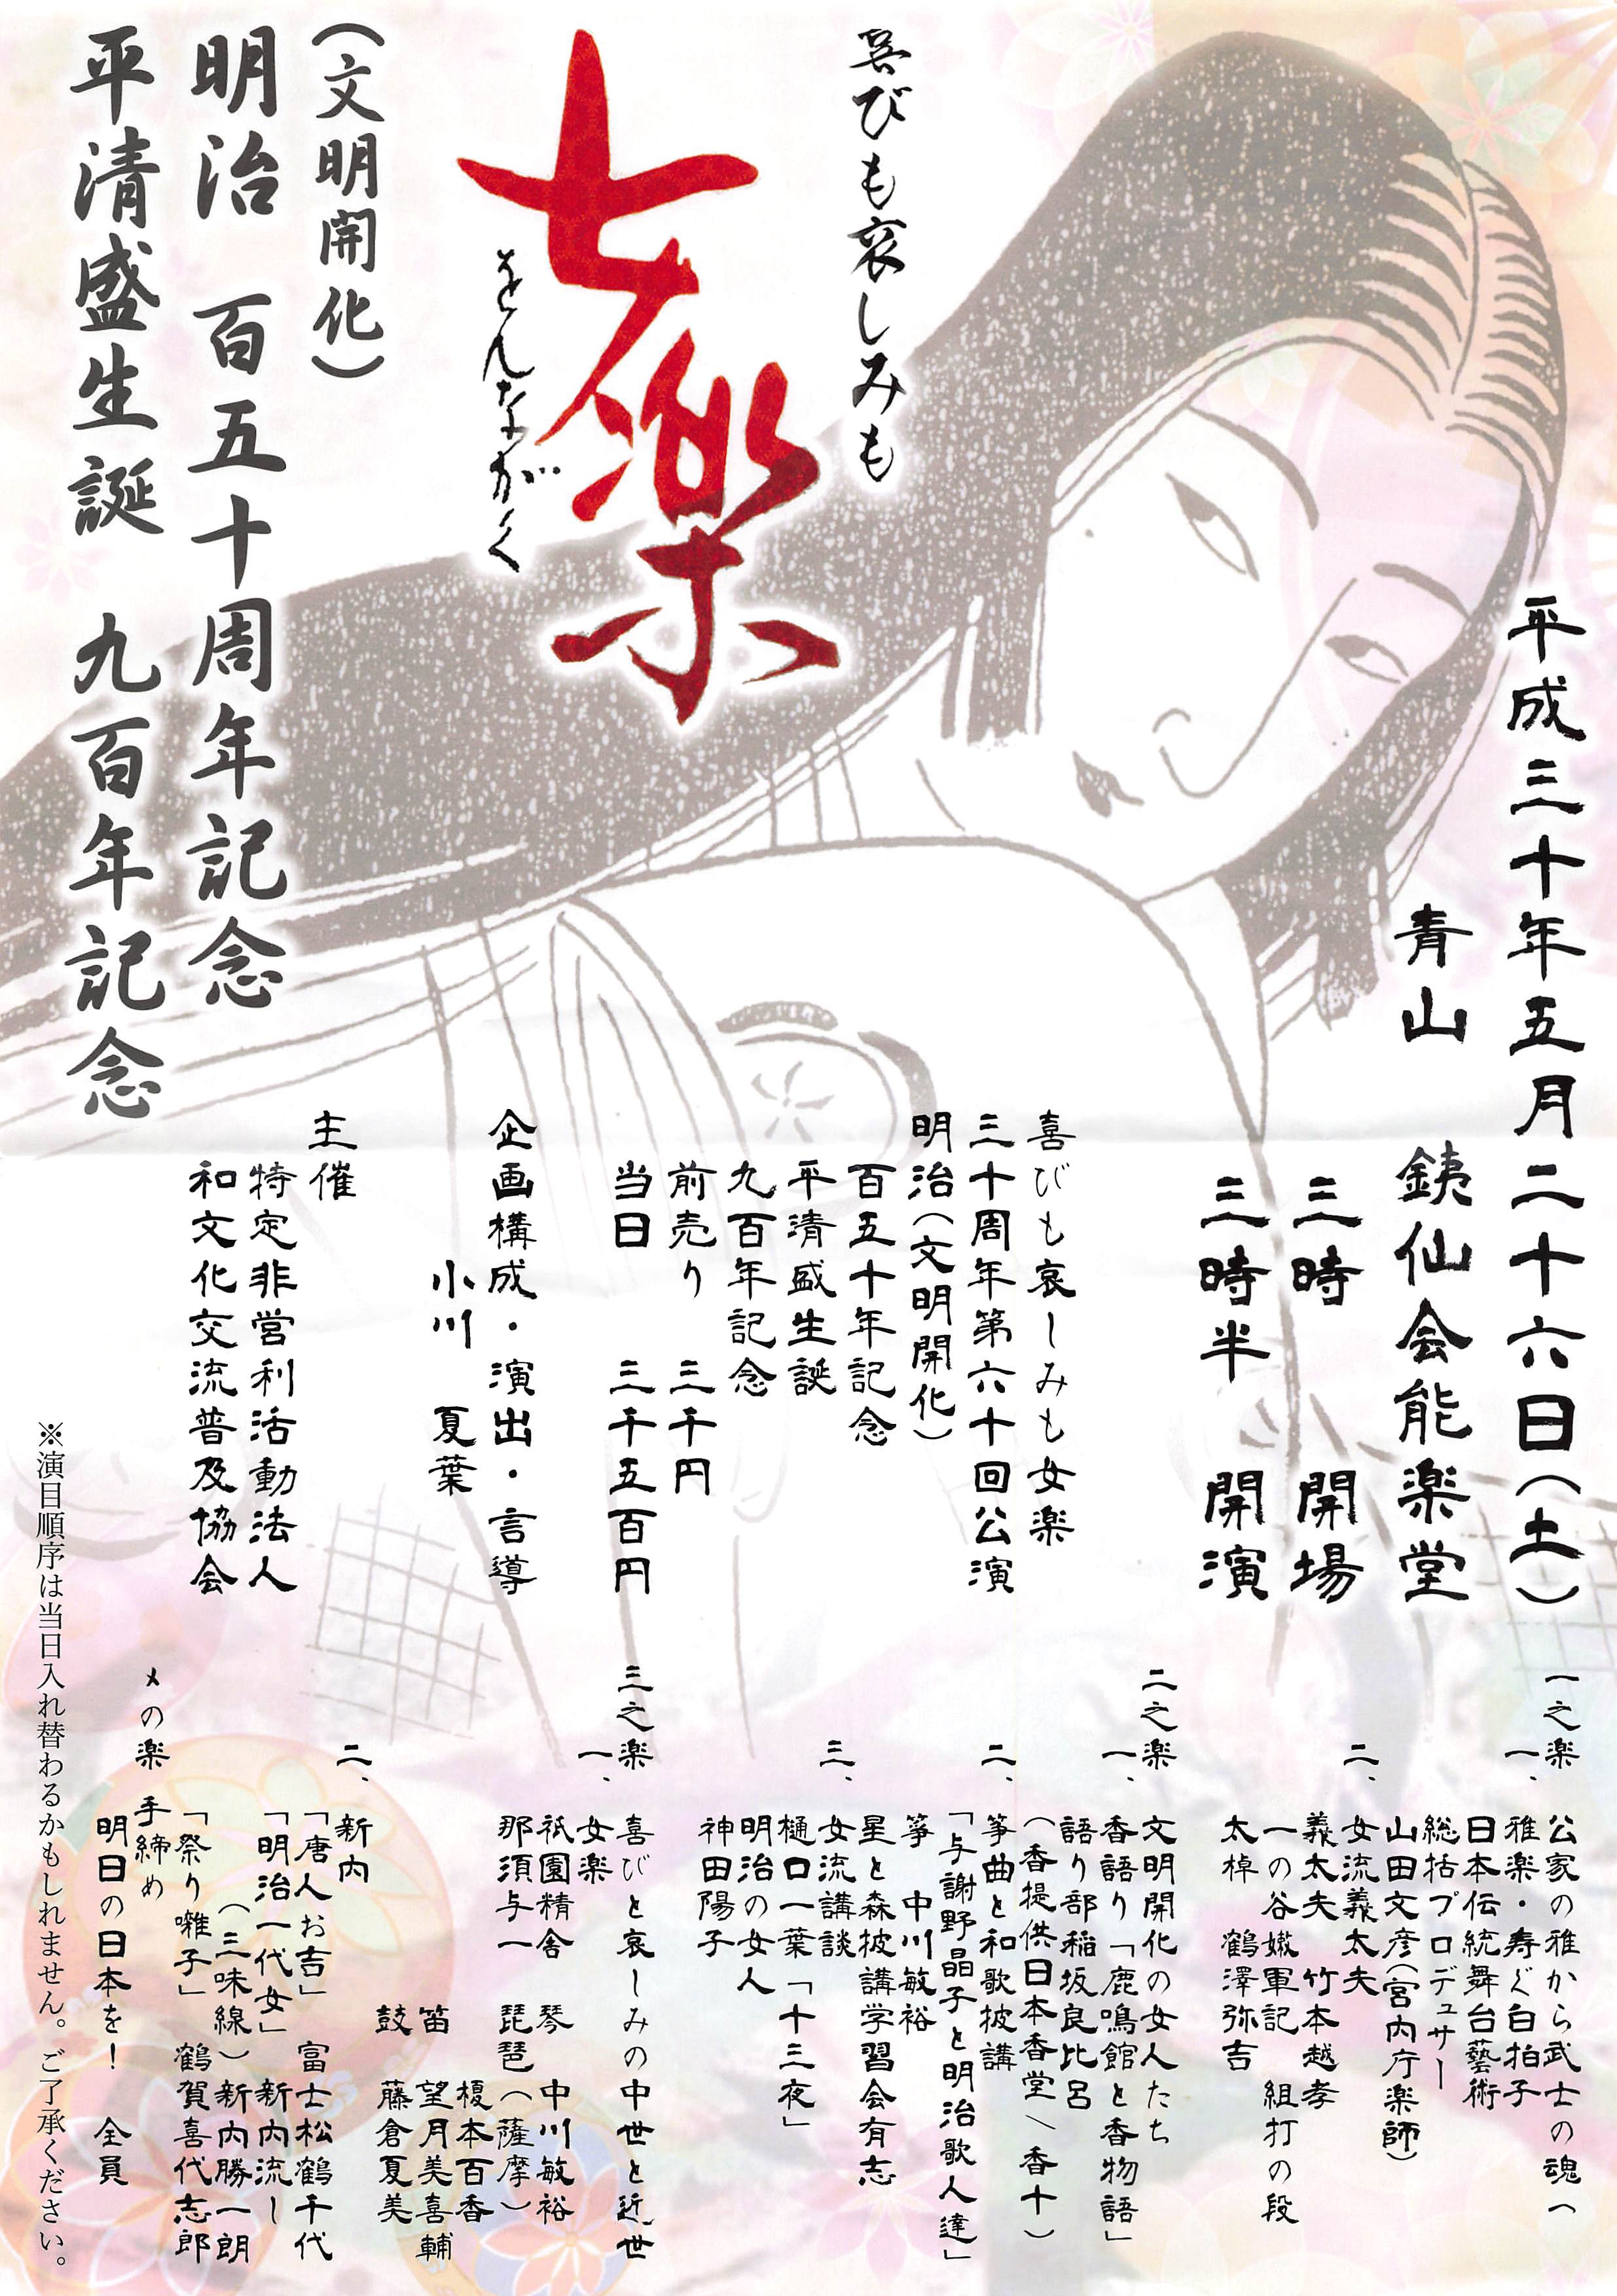 喜びも哀しみも
女楽
をんながく
(文明開化)
明治 百五十周年記念
平清盛生誕 九百年記念
平成三十年五月二十六日(土)
青山 銕仙会能楽堂
三時 開場
三時半 開演
喜びも哀しみも女楽
三十周年第六十回公演
明治(文明開化)
百五十年記念
平清盛生誕
九百年記念
前売り 三千円
当日 三千五百円
企画構成・演出・言導
小川 夏葉
主催
特定非営利活動法人
和文化交流普及協会
一之楽 公家の雅から武士の魂へ
一、雅楽・寿ぐ白拍子
日本伝統舞台藝術
総括プロデュサー
山田文彦(宮内庁楽師)
二、女流義太夫
義太夫 竹本越孝
一の谷嫩軍記 組打の段
太棹 鶴澤弥吉
二之楽 文明開化の女人たち
一、香語り「鹿鳴館と香物語」
語り部稲坂良比呂
(香提供日本香堂/香十)
二、箏曲と和歌披講
「与謝野晶子と明治歌人達」
箏 中川敏裕
星と森披講学習会有志
三、女流講談
樋口一葉「十三夜」
明治の女人
神田陽子
三之楽 喜びと哀しみの中世と近世
一、女楽
祇園精舎 琴 中川敏裕
那須与一 琵琶(薩摩)
榎本百香
笛 望月美喜輔
鼓 藤倉夏美
二、新内
「唐人お吉」 富士松鶴千代
「明治一代女」新内流し
(三味線)新内勝一朗
「祭り囃子」 鶴賀喜代志郎
〆の楽 手締め
明日の日本を! 全員
※演目順序は当日入れ替わるかもしれません。ご了承ください。